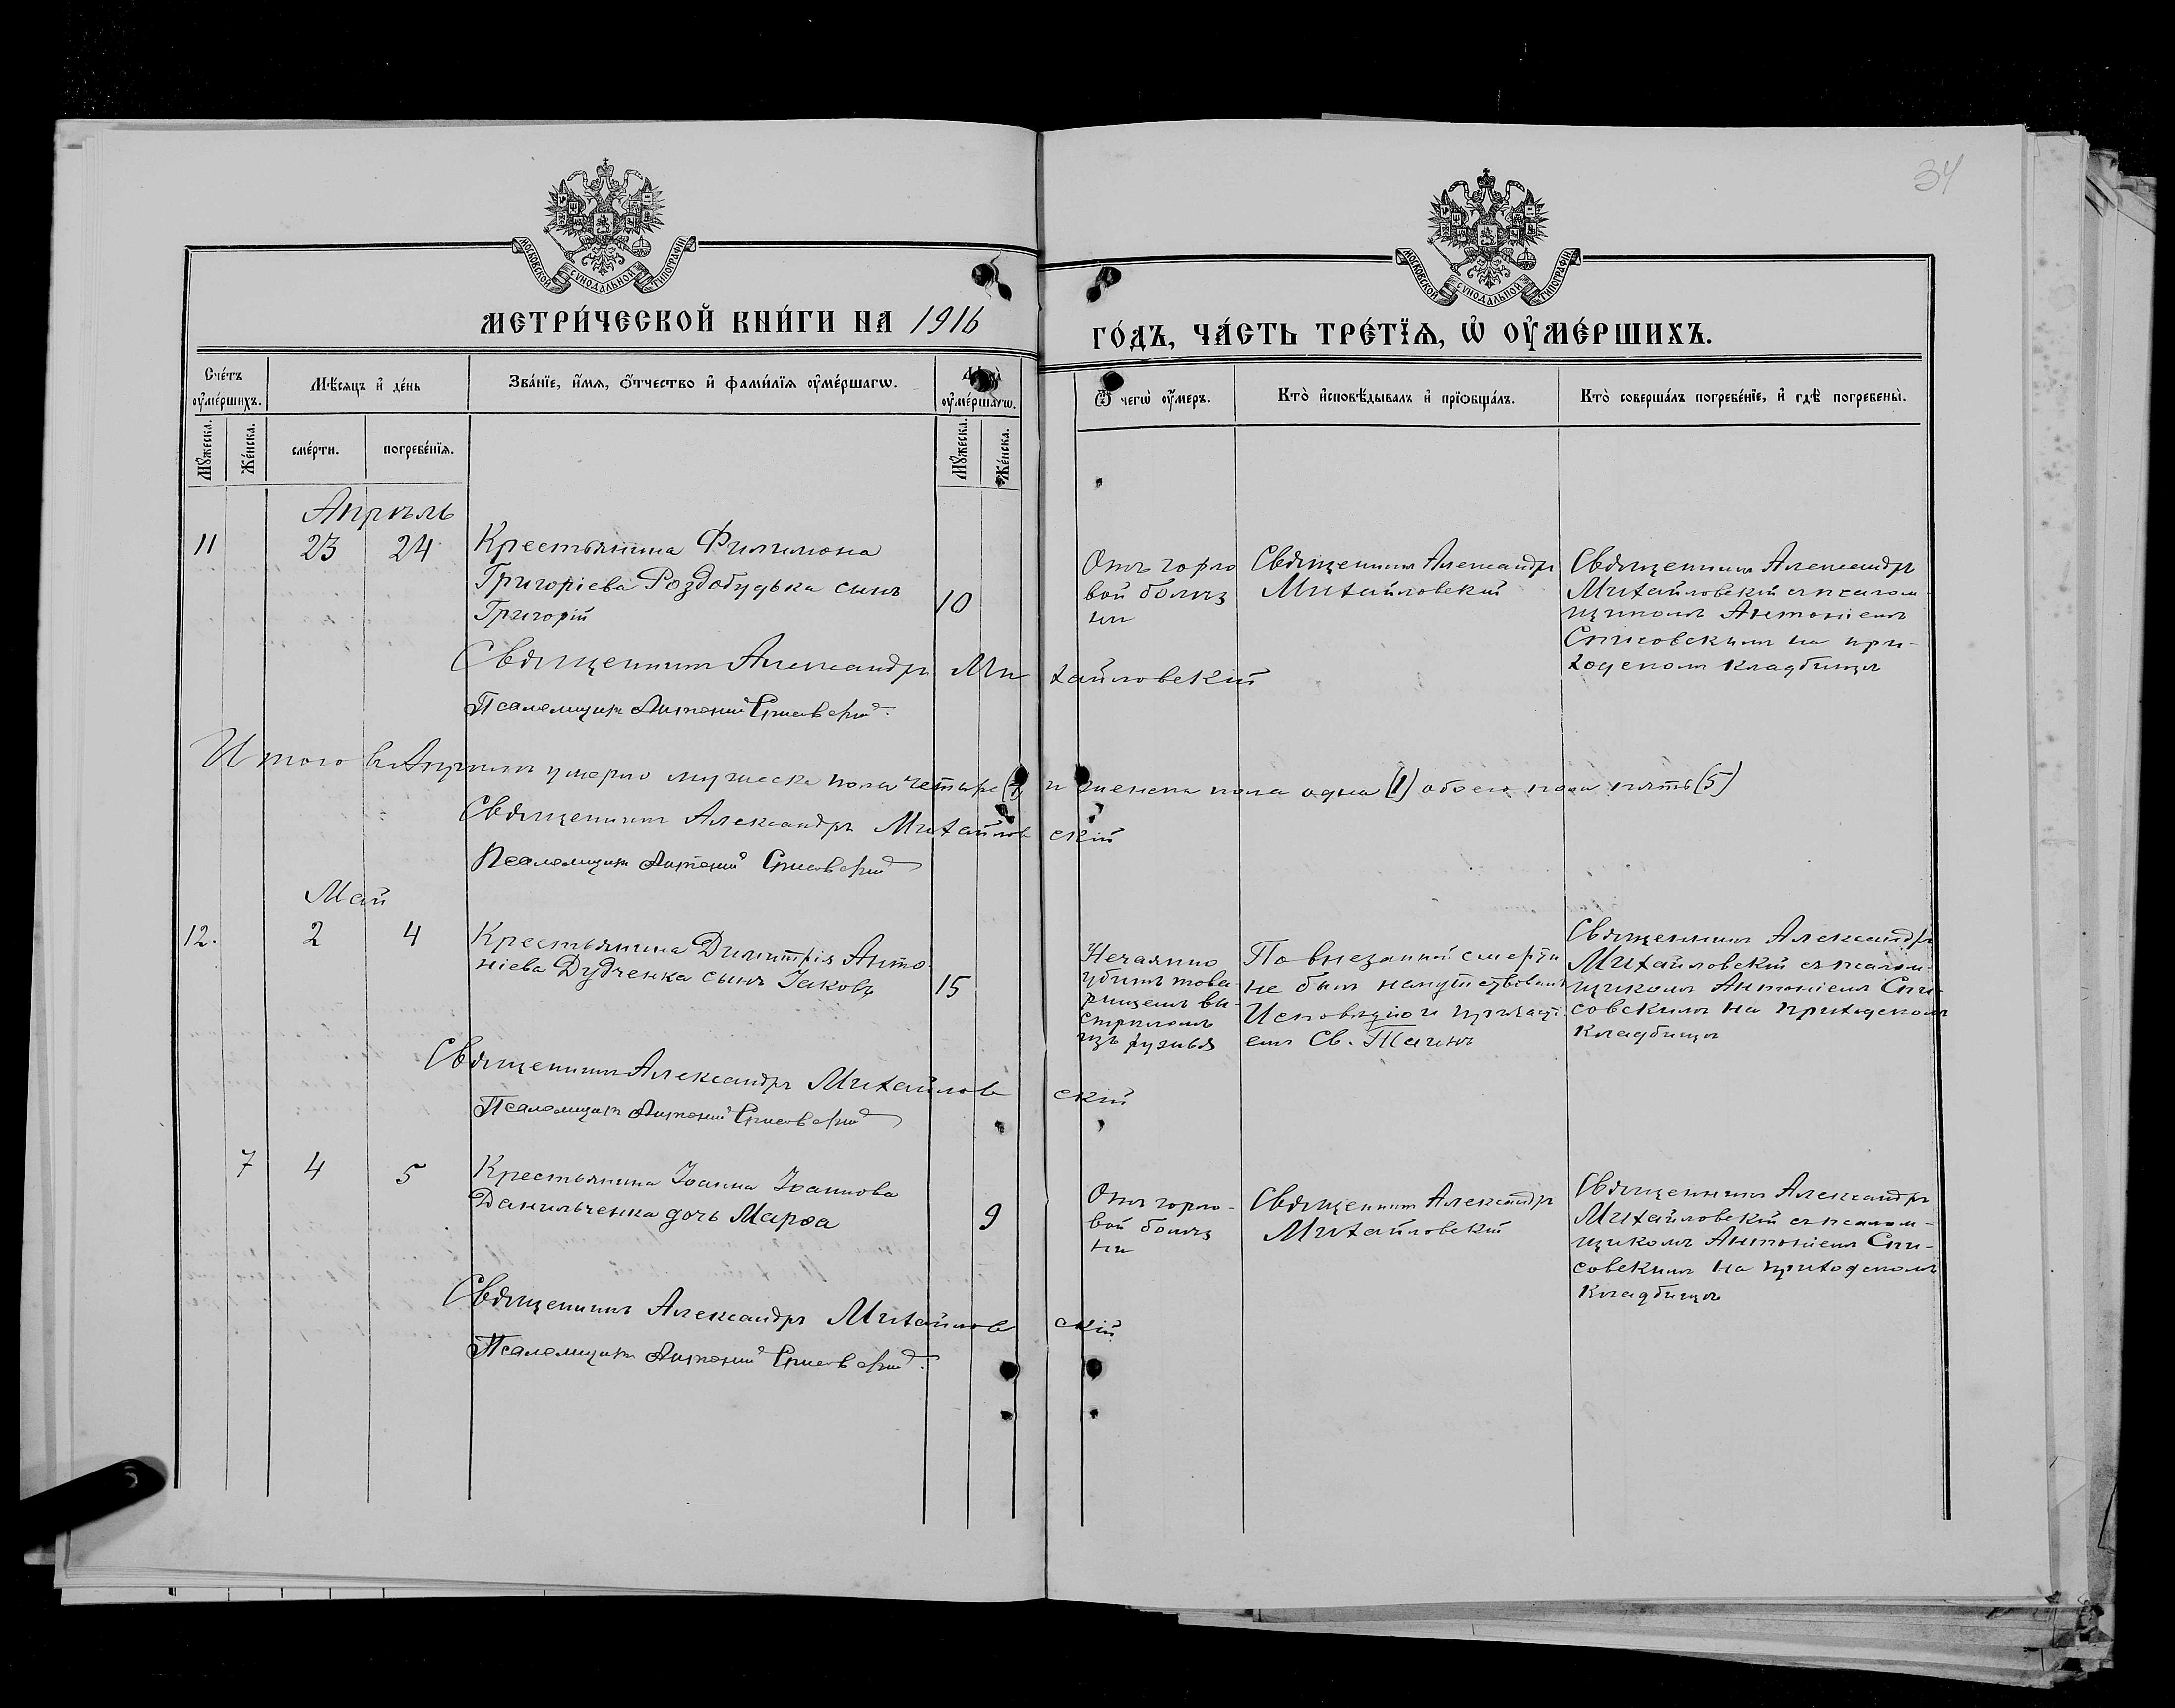 34
МОСКОВСКОЙ СѴНОДАЛЬНОЙ ТИПОГРАФІИ
МОСКОВСКОЙ СѴНОДАЛЬНОЙ ТИПОГРАФІИ
МЕТРИ́ЧЕСКОЙ КНИ́ГИ НА 1916
ГО́ДЪ, ЧА́СТЬ ТРЕ́ТЇѦ, Ѡ҆ ОУ҆МЕ́РШИХЪ.
Сче́тъ оу҆ме́ршихъ.
Мѣ́сяцъ и҆ де́нь
Зва́нїе, и҆́мѧ, ѻ҆́тчество и҆ фами́лїѧ оу҆ме́ршагѡ.
оу҆ме́ршагѡ.
Ѿ чегѡ̀ оу҆́меръ.
Кто̀ и҆сповѣ́дывалъ и҆ прїѻбща́лъ.
Кто̀ соверша́лъ погребе́нїе, и҆ гдѣ̀ погребены̀.
Мꙋ́жеска.
Же́нска.
сме́рти.
погребе́нїѧ.
Мꙋ́жеска.
Же́нска.
Апрѣль
11
23
24
Крестьянина Филимона
Григоріева Роздобудька сынъ
Григорій
10
Отъ горло
вой болѣз
ни
Священникъ Александръ
Михайловскій
Священникъ Александръ
Михайловскій съ псалом-
щикомъ Антоніемъ
Списовскимъ на при-
ходскомъ кладбищѣ
Священникъ Александръ Михайловскій
Псаломщикъ Антоній Списовскій.
Итого въ Апрѣлѣ умерло мужеска пола четыре (4) и женска пола одна (1) обоего пола пять (5)
Священникъ Александръ Михайловскій
Псаломщикъ Антоній Списовскій
Май
12.
2
4
Крестьянина Димитрія Анто-
ніева Дудченка сынъ Іаковъ
15
Нечаянно
убитъ това-
рищемъ вы-
стрѣломъ
изъ ружья
По внезапной смерти
не былъ напутствованъ
Исповѣдію и причаст
емъ Св. Таинъ
Священникъ Александръ
Михайловскій съ псалом-
щикомъ Антоніемъ Спи-
совскимъ на приходскомъ
кладбищѣ
Священникъ Александръ Михайловскій
Псаломщикъ Антоній Списовскій
7
4
5
Крестьянина Іоанна Іоаннова
Данильченка дочь Марѳа
9
Отъ горло-
вой болѣз
ни
Священникъ Александръ
Михайловскій
Священникъ Александръ
Михайловскій съ псалом-
щикомъ Антоніемъ Спи-
совскимъ на приходскомъ
кладбищѣ
Священникъ Александръ Михайловскій
Псаломщикъ Антоній Списовскій.